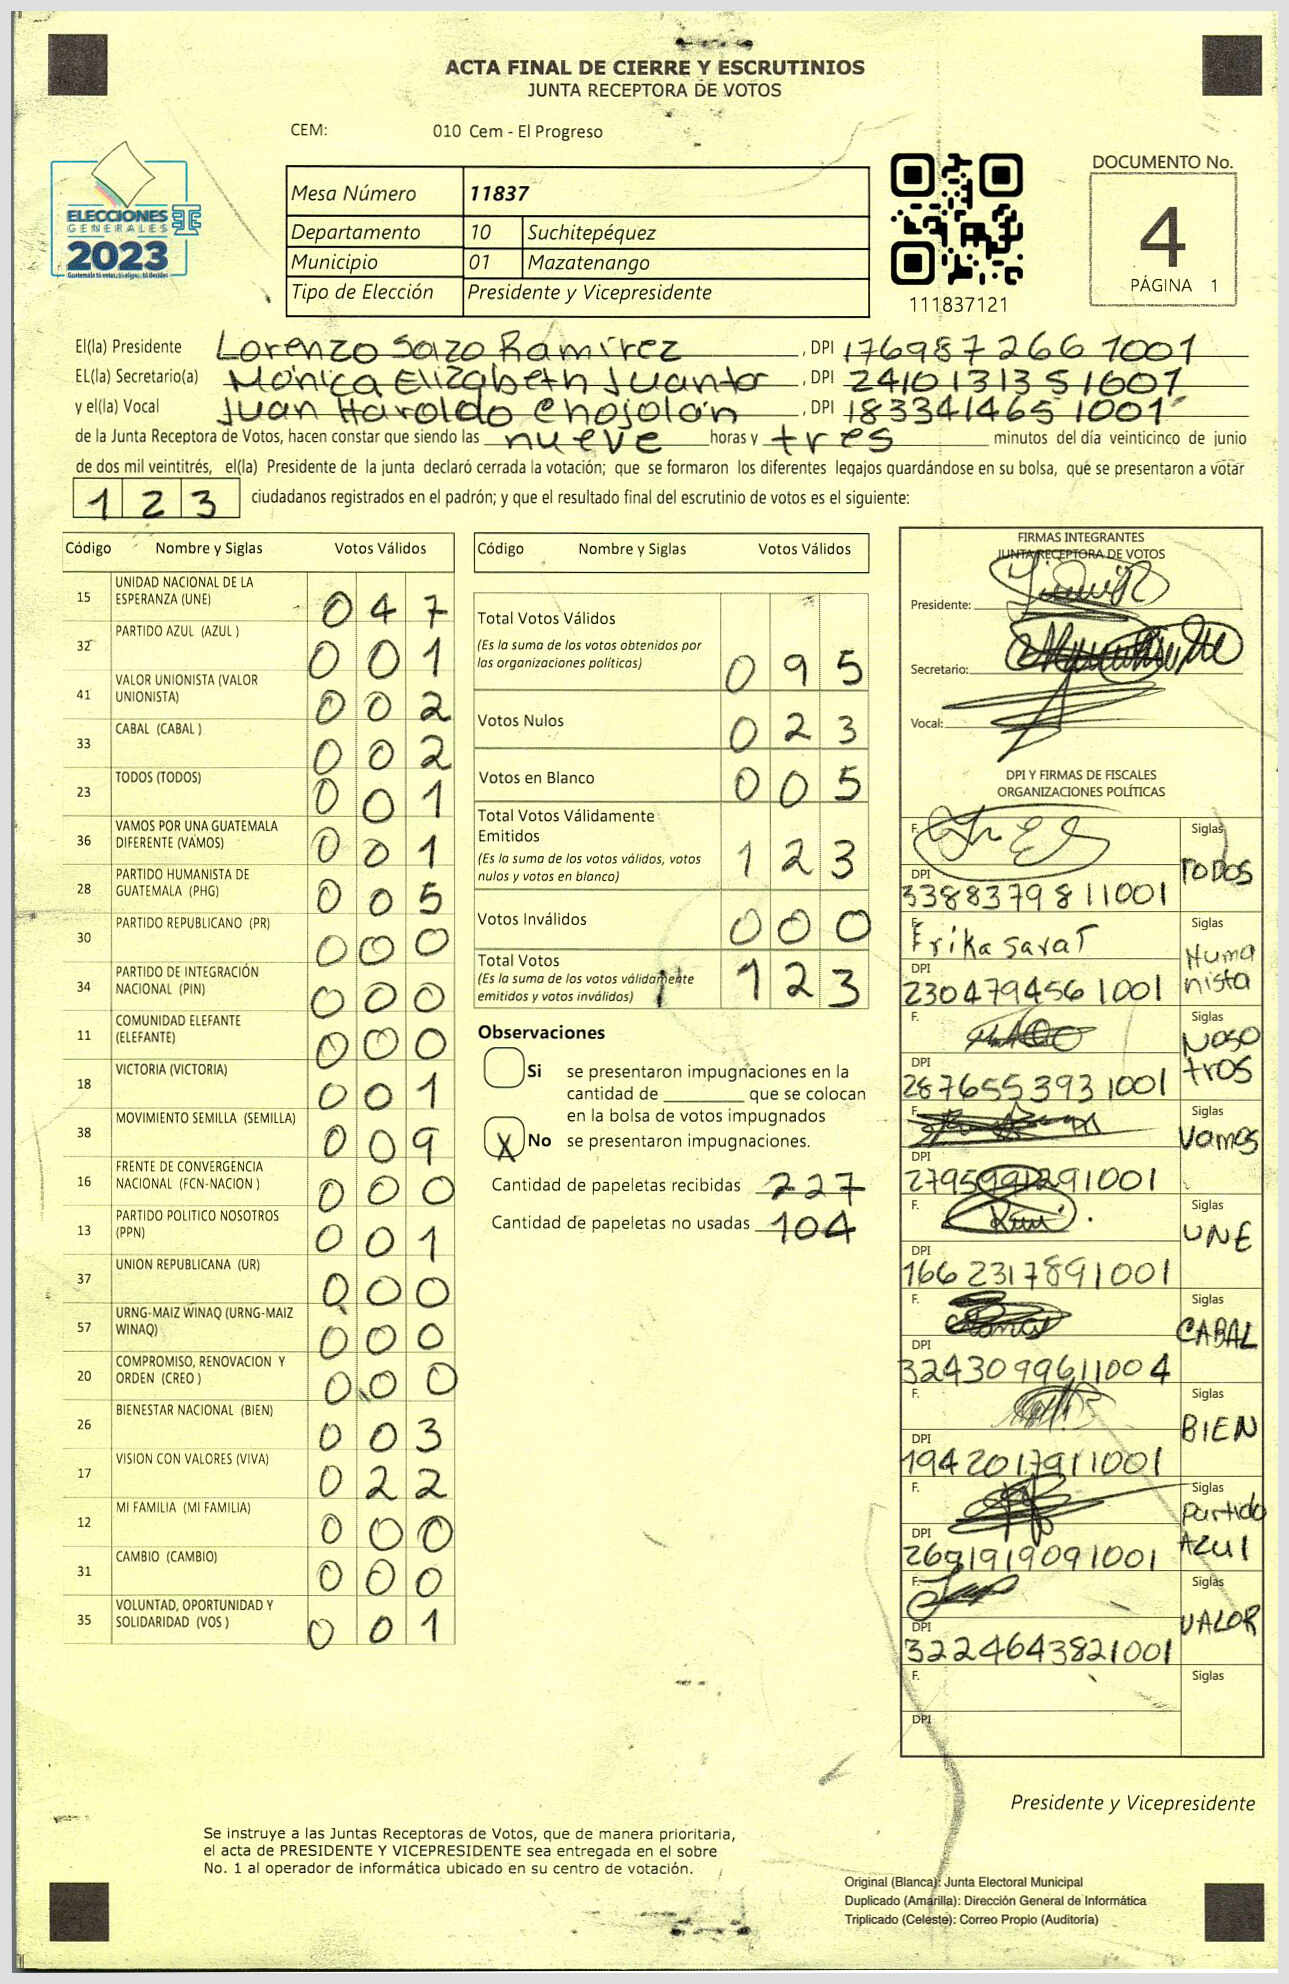 ACTA FINAL DE CIERRE Y ESCRUTINIOS
JUNTA RECEPTORA DE VOTOS
CEM: 010 Cem - El Progreso
ELECCIONES
GENERALES
2023
Mesa Número 11837
Departamento 10 Suchitepéquez
Municipio 01 Mazatenango
Tipo de Elección Presidente y Vicepresidente
111837121
DOCUMENTO No.
4
PÁGINA 1
El(la) Presidente Lorenzo Sazo Ramírez, DPI 176987266 1001
EL(la) Secretario(a) Mónica Elizabeth Juanta, DPI 2410131351601
y el(la) Vocal Juan Haroldo Chojolán, DPI 183341465 1001
de la Junta Receptora de Votos, hacen constar que siendo las nueve horas y tres minutos del día veinticinco de junio
de dos mil veintitrés, el(la) Presidente de la junta declaró cerrada la votación; que se formaron los diferentes legajos guardándose en su bolsa, que se presentaron a votar
123 ciudadanos registrados en el padrón; y que el resultado final del escrutinio de votos es el siguiente:
Código Nombre y Siglas Votos Válidos
15 UNIDAD NACIONAL DE LA ESPERANZA (UNE) 047
32 PARTIDO AZUL (AZUL ) 001
41 VALOR UNIONISTA (VALOR UNIONISTA) 002
33 CABAL (CABAL ) 002
23 TODOS (TODOS) 001
36 VAMOS POR UNA GUATEMALA DIFERENTE (VAMOS) 001
28 PARTIDO HUMANISTA DE GUATEMALA (PHG) 005
30 PARTIDO REPUBLICANO (PR) 000
34 PARTIDO DE INTEGRACIÓN NACIONAL (PIN) 000
11 COMUNIDAD ELEFANTE (ELEFANTE) 000
18 VICTORIA (VICTORIA) 001
38 MOVIMIENTO SEMILLA (SEMILLA) 009
16 FRENTE DE CONVERGENCIA NACIONAL (FCN-NACION ) 000
13 PARTIDO POLITICO NOSOTROS (PPN) 001
37 UNION REPUBLICANA (UR) 000
57 URNG-MAIZ WINAQ (URNG-MAIZ WINAQ) 000
20 COMPROMISO, RENOVACION Y ORDEN (CREO ) 000
26 BIENESTAR NACIONAL (BIEN) 003
17 VISION CON VALORES (VIVA) 022
12 MI FAMILIA (MI FAMILIA) 000
31 CAMBIO (CAMBIO) 000
35 VOLUNTAD, OPORTUNIDAD Y SOLIDARIDAD (VOS ) 001
Código Nombre y Siglas Votos Válidos
Total Votos Válidos
(Es la suma de los votos obtenidos por
las organizaciones políticas) 095
Votos Nulos 023
Votos en Blanco 005
Total Votos Válidamente
Emitidos
(Es la suma de los votos válidos, votos
nulos y votos en blanco) 123
Votos Inválidos 000
Total Votos
(Es la suma de los votos válidamente
emitidos y votos inválidos) 123
Observaciones
Si se presentaron impugnaciones en la
cantidad de ________ que se colocan
en la bolsa de votos impugnados
X No se presentaron impugnaciones.
Cantidad de papeletas recibidas 227
Cantidad de papeletas no usadas 104
FIRMAS INTEGRANTES
JUNTA RECEPTORA DE VOTOS
Presidente:
Secretario:
Vocal:
DPI Y FIRMAS DE FISCALES
ORGANIZACIONES POLÍTICAS
F. Siglas TODOS
DPI 3388379811001
F. Erika Sarat Siglas Humanista
DPI 2304794561001
F. Siglas Nosotros
DPI 2876553931001
F. Siglas Vamos
DPI
F. Siglas UNE
DPI 1662317891001
F. Siglas CABAL
DPI 3243099611004
F. Siglas BIEN
DPI 1942017911001
F. Siglas Partido Azul
DPI 2691919091001
F. Siglas VALOR
DPI 3224643821001
F. Siglas
DPI
Presidente y Vicepresidente
Se instruye a las Juntas Receptoras de Votos, que de manera prioritaria,
el acta de PRESIDENTE Y VICEPRESIDENTE sea entregada en el sobre
No. 1 al operador de informática ubicado en su centro de votación.
Original (Blanca): Junta Electoral Municipal
Duplicado (Amarilla): Dirección General de Informática
Triplicado (Celeste): Correo Propio (Auditoría)